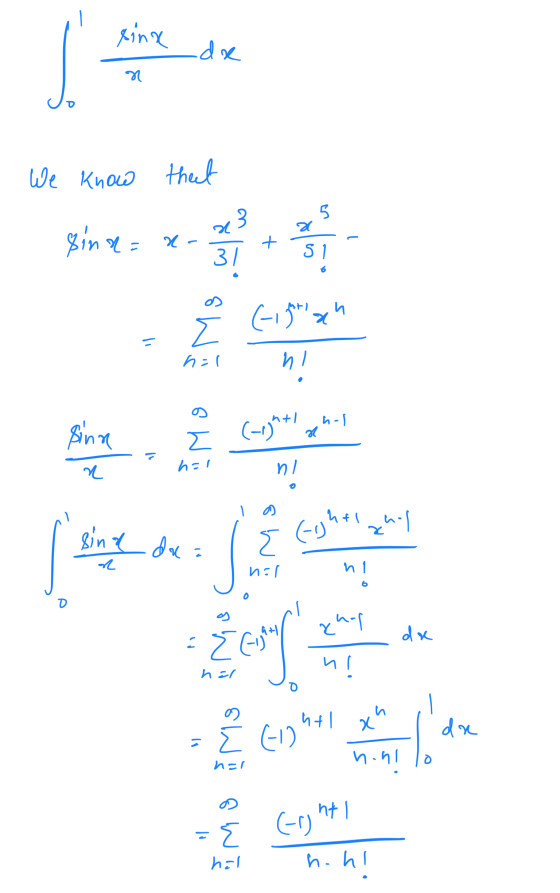 ∫₀¹ sinx/x dx
We know that
sin x = x - x³/3! + x⁵/5! -
= Σₙ₌₁^∞ (-1)ⁿ⁺¹ xⁿ / n!
sinx/x = Σₙ₌₁^∞ (-1)ⁿ⁺¹ xⁿ⁻¹ / n!
∫₀¹ sinx/x dx = ∫₀¹ Σₙ₌₁^∞ (-1)ⁿ⁺¹ xⁿ⁻¹ / n!
= Σₙ₌₁^∞ (-1)ⁿ⁺¹ ∫₀¹ xⁿ⁻¹ / n! dx
= Σₙ₌₁^∞ (-1)ⁿ⁺¹ xⁿ / n.n! |₀¹ dx
= Σₙ₌₁^∞ (-1)ⁿ⁺¹ / n.n!